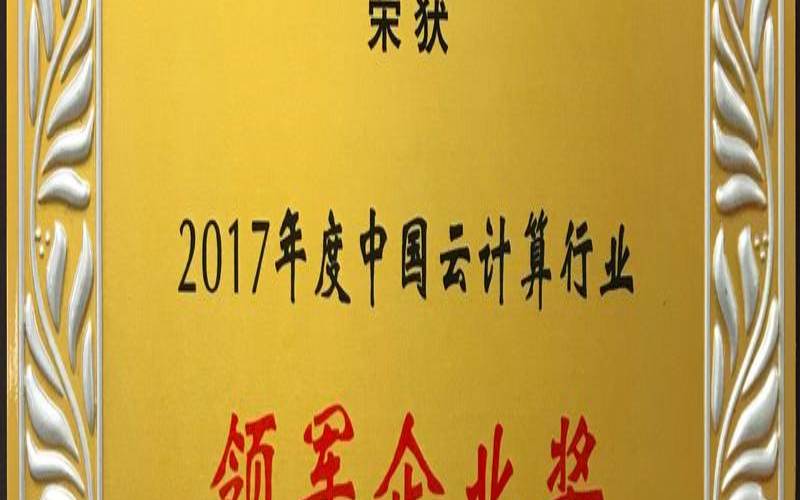 荣获
2017年度中国云计算行业
领军企业奖